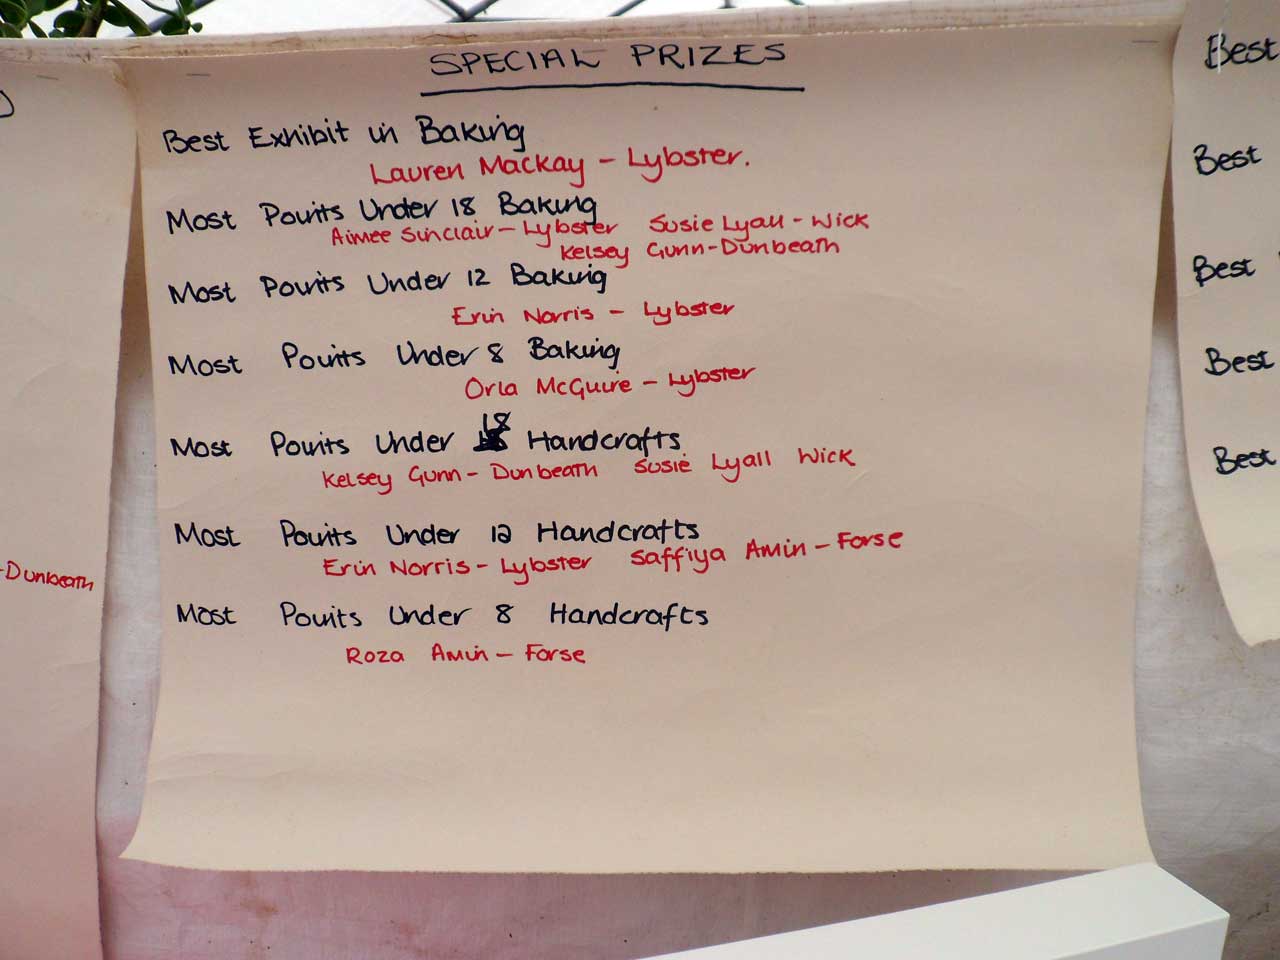 SPECIAL PRIZES
Best Exhibit in Baking
Lauren Mackay - Lybster.
Most Points Under 18 Baking
Aimee Sinclair - Lybster Susie Lyall - Wick
Kelsey Gunn - Dunbeath
Most Points Under 12 Baking
Erin Norris - Lybster
Most Points Under 8 Baking
Orla McGuire - Lybster
Most Points Under 18 Handcrafts
Kelsey Gunn - Dunbeath Susie Lyall Wick
Most Points Under 12 Handcrafts
Erin Norris - Lybster Saffiya Amin - Forse
Most Points Under 8 Handcrafts
Roza Amin - Forse
- Dunbeath
Best
Best
Best
Best
Best